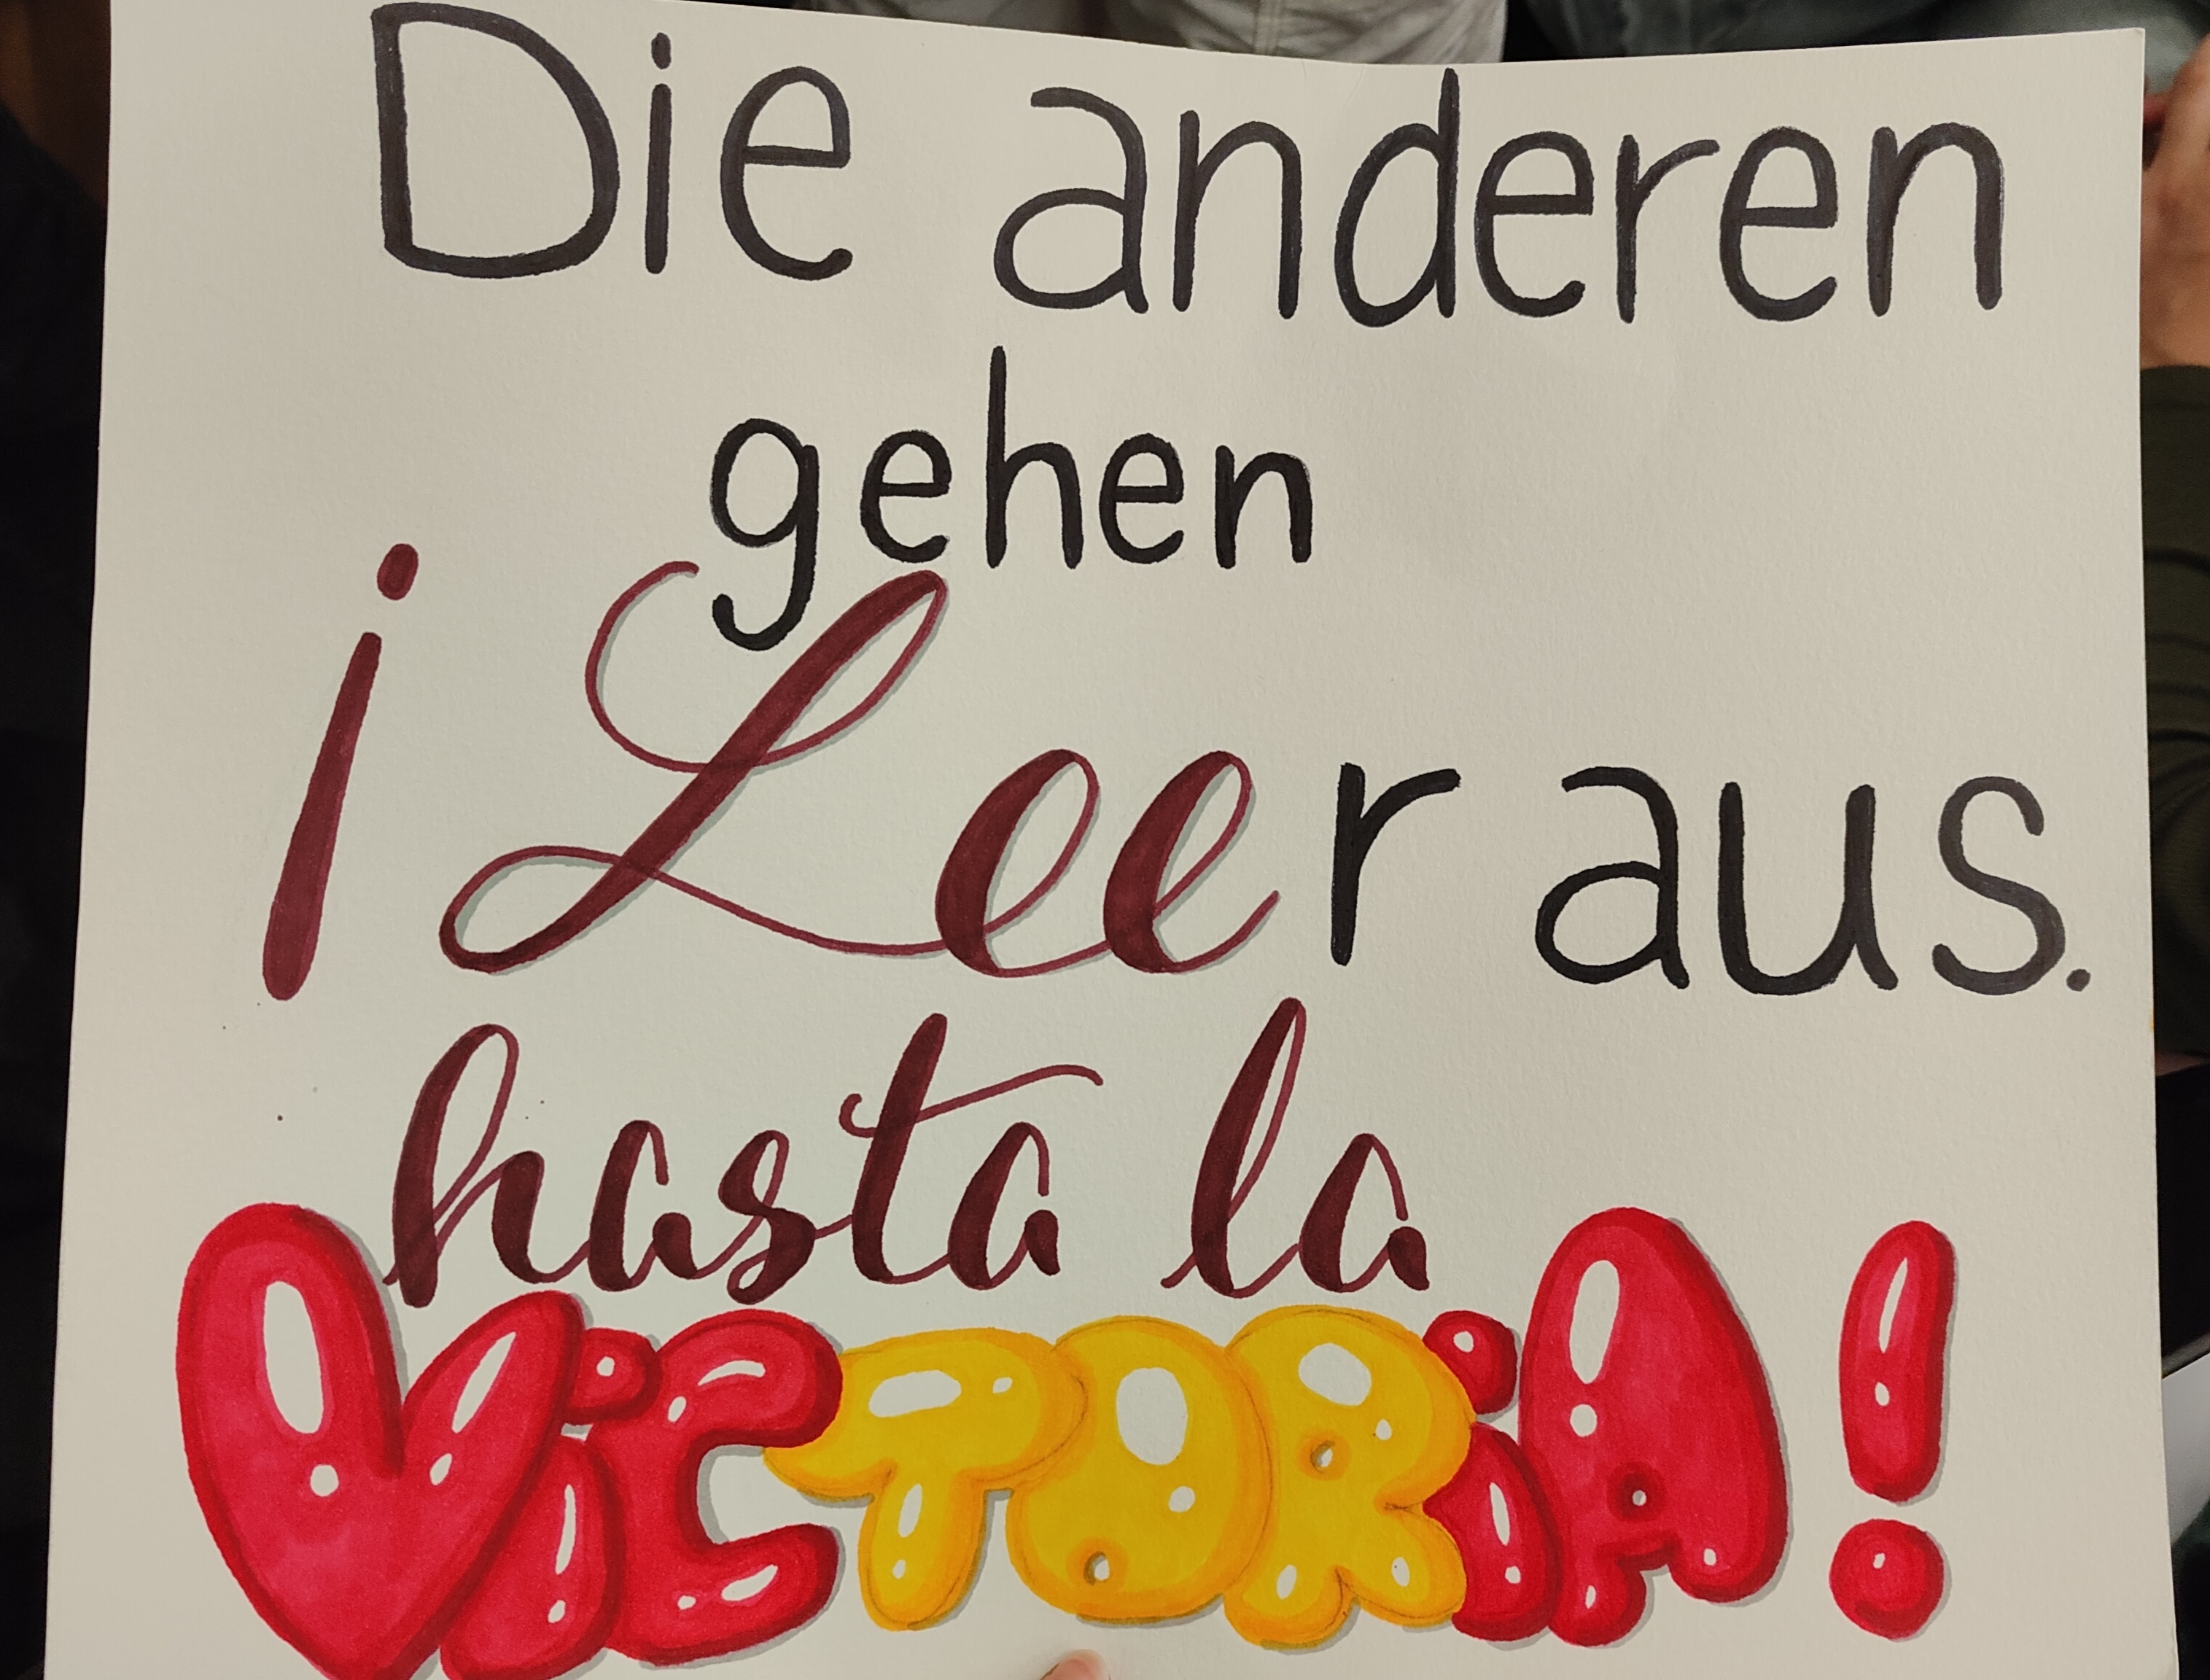 Die anderen
gehen
¡Leer aus.
hasta la
ViCTORiA!